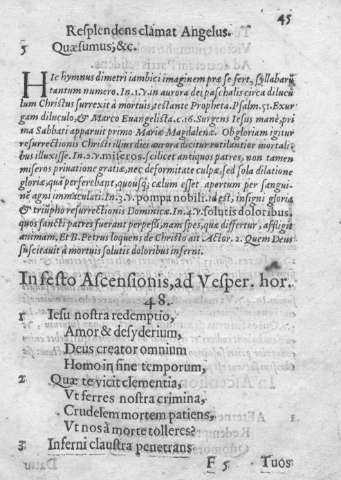 45
Resplendens clamat Angelus.
5 Quæsumus, &c.
HIc hymnus dimetri iambici imaginem præ se fert, syllabarũ
tantum numero. In.1.℣.in aurora dei paschalis circa dilucu
lum Christus surrexit à mortuis, testante Propheta. Psalm.51. Exur
gam diluculo, & Marco Euangelista.c.16. Surgens Iesus manè, pri
ma Sabbati apparuit primo Mariæ Magdalenæ. Ob gloriam igitur
resurrectionis Christi illius diei aurora dicitur rutilantior mortali-
bus illuxisse. In.2.℣.miseros. scilicet antiquos patres, non tamen
miseros priuatione gratiæ, nec deformitate culpæ, sed sola dilatione
gloriæ, quã perferebant, quousq; cælum esset apertum per sangui-
nẽ agni immaculati. In.3.℣.pompa nobili. id est, insigni gloria
& triũpho resurrectionis Dominicæ. In.4.℣.solutis doloribus.
quos sancti patres fuerant perpessi, nam spes, quæ differtur, affligit
animam. Et B. Petrus loquens de Christo ait. Actor.2. Quem Deus
suscitauit à mortuis solutis doloribus inferni.
In festo Ascensionis, ad Vesper. hor.
48.
1 Iesu nostra redemptio,
Amor & desyderium,
Deus creator omnium
Homo in fine temporum,
2 Quæ te vicit clementia,
Vt ferres nostra crimina,
Crudelem mortem patiens,
Vt nos à morte tolleres?
3 Inferni claustra penetrans
F 5 Tuos